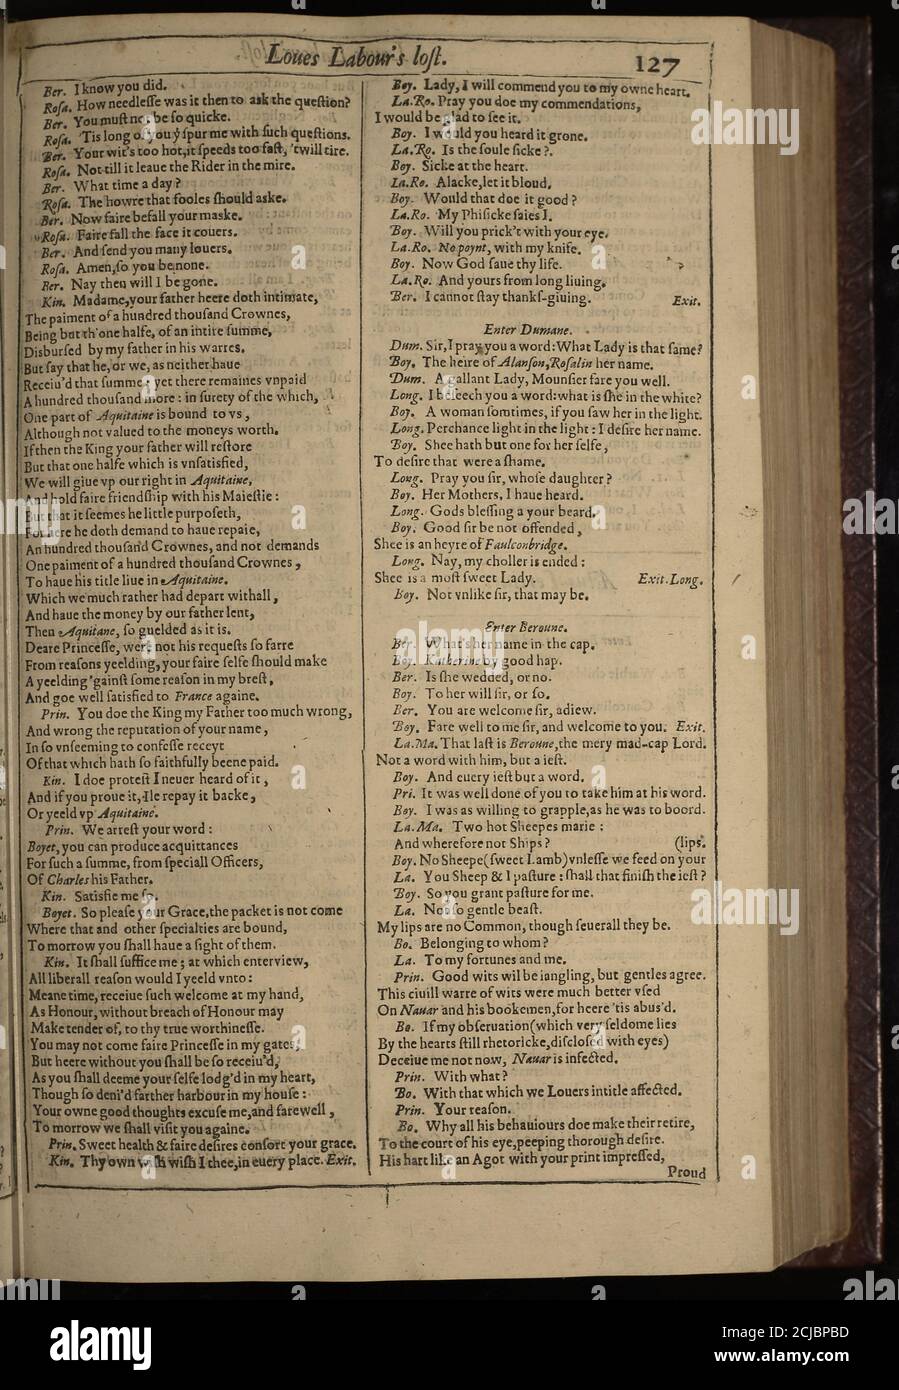 Loues Labour's lost.
127
Ber. I know you did.
Rosa. How needlesse was it then to ask the question?
Ber. You must not be so quicke.
Rosa. 'Tis long of you yͭ spur me with such questions.
Ber. Your wit's too hot, it speeds too fast, 'twill tire.
Rosa. Not till it leaue the Rider in the mire.
Ber. What time a day?
Rosa. The howre that fooles should aske.
Ber. Now faire befall your maske.
Rosa. Faire fall the face it couers.
Ber. And send you many louers.
Rosa. Amen, so you be none.
Ber. Nay then will I be gone.
Kin. Madame, your father heere doth intimate,
The paiment of a hundred thousand Crownes,
Being but th'one halfe, of an intire summe,
Disbursed by my father in his warres.
But say that he, or we, as neither haue
Receiu'd that summe; yet there remaines vnpaid
A hundred thousand more: in surety of the which,
One part of Aquitaine is bound to vs,
Although not valued to the moneys worth.
If then the King your father will restore
But that one halfe which is vnsatisfied,
We will giue vp our right in Aquitaine,
And hold faire friendship with his Maiestie:
But that it seemes he little purposeth,
For here he doth demand to haue repaie,
An hundred thousand Crownes, and not demands
One paiment of a hundred thousand Crownes,
To haue his title liue in Aquitaine.
Which we much rather had depart withall,
And haue the money by our father lent,
Then Aquitane, so guelded as it is.
Deare Princesse, were not his requests so farre
From reasons yeelding, your faire selfe should make
A yeelding 'gainst some reason in my brest,
And goe well satisfied to France againe.
Prin. You doe the King my Father too much wrong,
And wrong the reputation of your name,
In so vnseeming to confesse receyt
Of that which hath so faithfully beene paid.
Kin. I doe protest I neuer heard of it,
And if you proue it, Ile repay it backe,
Or yeeld vp Aquitaine.
Prin. We arrest your word:
Boyet, you can produce acquittances
For such a summe, from speciall Officers,
Of Charles his Father.
Kin. Satisfie me so.
Boyet. So please your Grace, the packet is not come
Where that and other specialties are bound,
To morrow you shall haue a sight of them.
Kin. It shall suffice me; at which enterview,
All liberall reason would I yeeld vnto:
Meane time, receiue such welcome at my hand,
As Honour, without breach of Honour may
Make tender of, to thy true worthinesse.
You may not come faire Princesse in my gates,
But heere without you shall be so receiu'd,
As you shall deeme your selfe lodg'd in my heart,
Though so deni'd farther harbour in my house:
Your owne good thoughts excuse me, and farewell,
To morrow we shall visit you againe.
Prin. Sweet health & faire desires consort your grace.
Kin. Thy own wish wish I thee, in euery place. Exit.
Boy. Lady, I will commend you to my owne heart.
La.Ro. Pray you doe my commendations,
I would be glad to see it.
Boy. I would you heard it grone.
La.Ro. Is the soule sicke?
Boy. Sicke at the heart.
La.Ro. Alacke, let it bloud.
Boy. Would that doe it good?
La.Ro. My Phisicke saies I.
Boy. Will you prick't with your eye.
La.Ro. No poynt, with my knife.
Boy. Now God saue thy life.
La.Ro. And yours from long liuing.
Ber. I cannot stay thanks-giuing. Exit.
Enter Dumane.
Dum. Sir, I pray you a word: What Lady is that same?
Boy. The heire of Alanson, Rosalin her name.
Dum. A gallant Lady, Mounsier fare you well.
Long. I beseech you a word: what is she in the white?
Boy. A woman somtimes, if you saw her in the light.
Long. Perchance light in the light: I desire her name.
Boy. Shee hath but one for her selfe,
To desire that were a shame.
Long. Pray you sir, whose daughter?
Boy. Her Mothers, I haue heard.
Long. Gods blessing a your beard.
Boy. Good sir be not offended,
Shee is an heyre of Faulconbridge.
Long. Nay, my choller is ended:
Shee is a most sweet Lady. Exit. Long.
Boy. Not vnlike sir, that may be.
Enter Beroune.
Ber. What's her name in the cap.
Boy. Katherine by good hap.
Ber. Is she wedded, or no.
Boy. To her will sir, or so.
Ber. You are welcome sir, adiew.
Boy. Fare well to me sir, and welcome to you. Exit.
La.Ma. That last is Beroune, the mery mad-cap Lord.
Not a word with him, but a iest.
Boy. And euery iest but a word.
Pri. It was well done of you to take him at his word.
Boy. I was as willing to grapple, as he was to boord.
La.Ma. Two hot Sheepes marie:
And wherefore not Ships? (lips.
Boy. No Sheepe (sweet Lamb) vnlesse we feed on your
La. You Sheep & I pasture: shall that finish the iest?
Boy. So you grant pasture for me.
La. Not so gentle beast.
My lips are no Common, though seuerall they be.
Bo. Belonging to whom?
La. To my fortunes and me.
Prin. Good wits wil be iangling, but gentles agree.
This ciuill warre of wits were much better vsed
On Nauar and his bookemen, for heere 'tis abus'd.
Bo. If my obseruation (which very seldome lies
By the hearts still rhetoricke, disclosed with eyes)
Deceiue me not now, Nauar is infected.
Prin. With what?
Bo. With that which we Louers intitle affected.
Prin. Your reason.
Bo. Why all his behauiours doe make their retire,
To the court of his eye, peeping thorough desire.
His hart like an Agot with your print impressed,
Proud
alamy
alamy
alamy
alamy
Image ID: 2CJBPBD
www.alamy.com